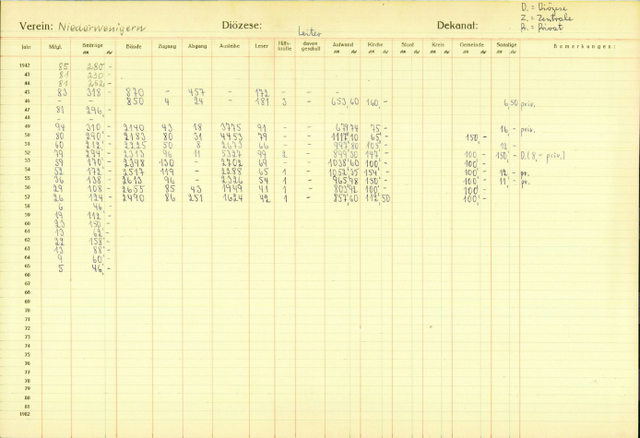 D. = Diözese
Z. = Zentrale
P. = Privat
Verein: Niederwenigern Diözese: Leiter Dekanat:
Jahr Mitgl. Beiträge Bände Zugang Abgang Ausleihe Leser Hilfskräfte davon geschult Aufwand Kirche Staat Kreis Gemeinde Sonstige Bemerkungen:
1942 85 280,-
43 81 230 -
44 81 262,-
45 83 318 - 870 - 457 - 172 -
46 - - 850 4 24 - 181 3 - 653,60 160,- 6,50 priv.
47 81 296,-
48 - -
49 94 310,- 2140 43 18 3775 91 - - 75,- 16,- priv.
50 80 240,- 2183 80 31 4453 79 - - 1117,10 65,- 150,-
51 60 212,- 2225 50 8 2673 66 - - 997,80 105,- 12,-
52 79 294,- 2313 96 11 5327 99 2 - 147,- 100,- 150,- D.(8,- priv.)
53 59 170,- 2398 130 - 2702 69 - - 1038,60 100,- 100,-
54 52 172,- 2517 119 - 2288 65 1 - 1052,35 154,- 100,- 12,- pr.
55 36 138,- 2613 96 - 2326 54 1 - 965,98 150,- 100,- 11,- pr.
56 29 108,- 2655 85 43 1949 41 1 - 802,92 100,- 100,-
57 26 124,- 2490 86 251 1624 42 1 - 857,60 112,50 100,-
58 6 46,-
59 19 112,-
60 23 150,-
61 13 62,-
62 22 158,-
63 13 88,-
64 9 60,-
65 5 46,-
66
67
68
69
70
71
72
73
74
75
76
77
78
79
80
81
1982